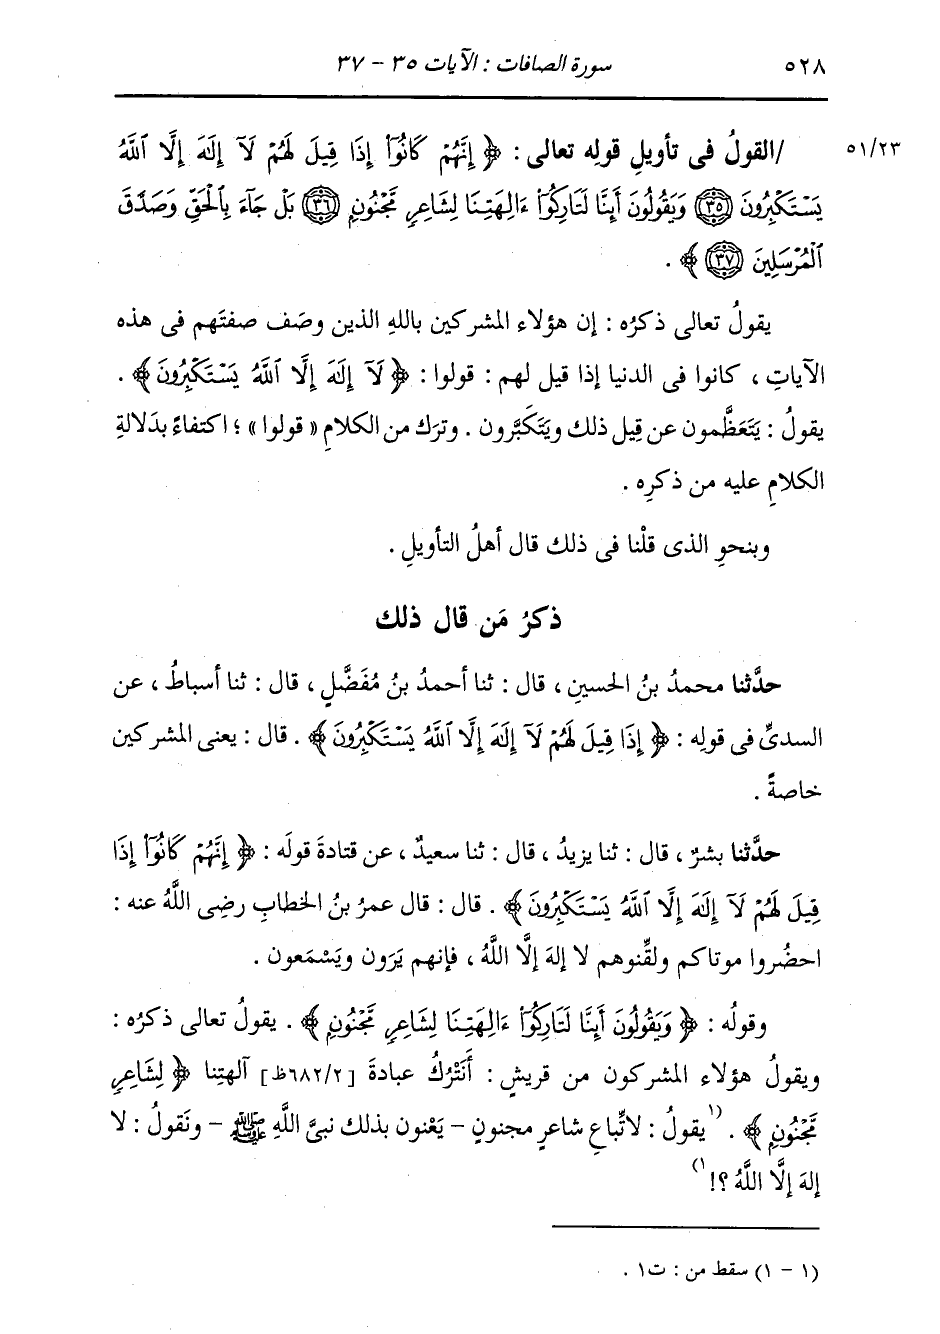 ٥٢٨ سورة الصافات : الآيات ٣٥ - ٣٧
٥١/٢٣ /القولُ فى تأويلِ قولِه تعالى : ﴿ إِنَّهُمْ كَانُوٓا۟ إِذَا قِيلَ لَهُمْ لَآ إِلَٰهَ إِلَّا ٱللَّهُ
يَسْتَكْبِرُونَ ٣٥ وَيَقُولُونَ أَئِنَّا لَتَارِكُوٓا۟ ءَالِهَتِنَا لِشَاعِرٍ مَّجْنُونٍ ٣٦ بَلْ جَآءَ بِٱلْحَقِّ وَصَدَّقَ
ٱلْمُرْسَلِينَ ٣٧ ﴾ .
يقولُ تعالى ذكرُه : إن هؤلاء المشركين باللهِ الذين وصَف صفتَهم فى هذه
الآياتِ ، كانوا فى الدنيا إذا قيل لهم : قولوا : ﴿ لَآ إِلَٰهَ إِلَّا ٱللَّهُ يَسْتَكْبِرُونَ ﴾ .
يقولُ : يَتَعَظَّمون عن قِيل ذلك ويَتَكبَّرون . وترَك من الكلامِ « قولوا » ؛ اكتفاءً بدَلالةِ
الكلامِ عليه من ذكرِه .
وبنحوِ الذى قلْنا فى ذلك قال أهلُ التأويلِ .
ذكرُ مَن قال ذلك
حدَّثنا محمدُ بنُ الحسينِ ، قال : ثنا أحمدُ بنُ مُفَضَّلٍ ، قال : ثنا أسباطُ ، عن
السدىِّ فى قولِه : ﴿ إِذَا قِيلَ لَهُمْ لَآ إِلَٰهَ إِلَّا ٱللَّهُ يَسْتَكْبِرُونَ ﴾ . قال : يعنى المشركين
خاصةً .
حدَّثنا بشرٌ ، قال : ثنا يزيدُ ، قال : ثنا سعيدٌ ، عن قتادةَ قولَه : ﴿ إِنَّهُمْ كَانُوٓا۟ إِذَا
قِيلَ لَهُمْ لَآ إِلَٰهَ إِلَّا ٱللَّهُ يَسْتَكْبِرُونَ ﴾ . قال : قال عمرُ بنُ الخطابِ رضِى اللَّهُ عنه :
احضُروا موتاكم ولقِّنوهم لا إلهَ إلَّا اللَّهُ ، فإنهم يَرَون ويَسْمَعون .
وقولُه : ﴿ وَيَقُولُونَ أَئِنَّا لَتَارِكُوٓا۟ ءَالِهَتِنَا لِشَاعِرٍ مَّجْنُونٍ ﴾ . يقولُ تعالى ذكرُه :
ويقولُ هؤلاء المشركون من قريشٍ : أَنَتْرُكُ عبادةَ [٦٨٢/٢ظ] آلهتِنا ﴿ لِشَاعِرٍ
مَّجْنُونٍ ﴾ . (١يقولُ : لاتِّباعِ شاعرٍ مجنونٍ - يَعْنون بذلك نبىَّ اللَّهِ ﷺ - ونَقولُ : لا
إلهَ إلَّا اللَّهُ ؟!١)
(١ - ١) سقط من : ت١ .